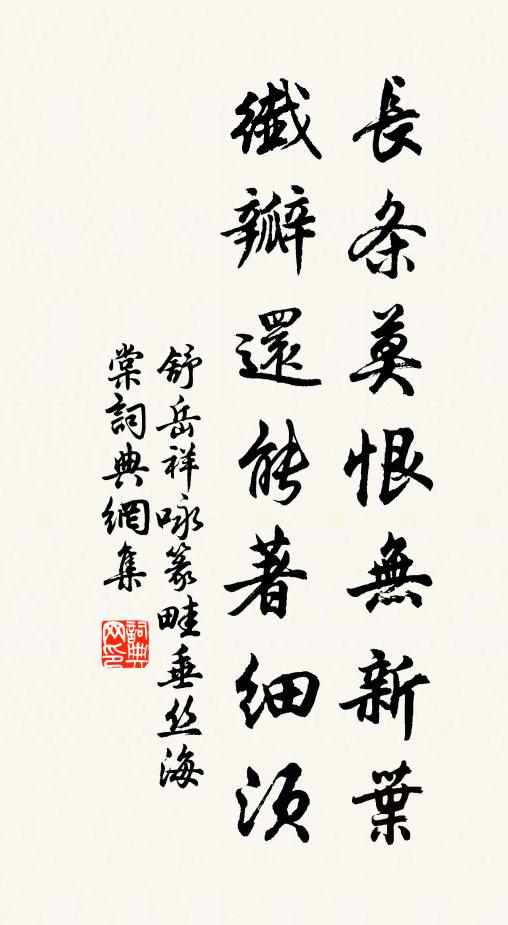 長条莫恨無新葉
纖瓣還能著細須
舒岳祥咏篆畦垂丝海
棠詞典網集
詞典网印